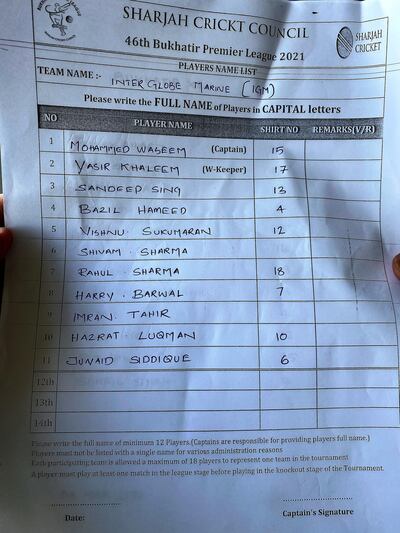 SHARJAH CRICKT COUNCIL
46th Bukhatir Premier League 2021
SHARJAH CRICKET
PLAYERS NAME LIST
TEAM NAME :- INTER GLOBE MARINE (IGM)
Please write the FULL NAME of Players in CAPITAL letters
NO PLAYER NAME SHIRT NO REMARKS(V/R)
1 MOHAMMED WASEEM (Captain) 15
2 YASIR KHALEEM (W-Keeper) 17
3 SANDEED SING 13
4 BAZIL HAMEED 4
5 VISHNU SUKUMARAN 12
6 SHIVAM . SHARMA
7 RAHUL . SHARMA 18
8 HARRY . BARWAL 7
9 IMRAN . TAHIR
10 HAZRAT . LUQMAN 10
11 JUNAID SIDDIQUE 6
12th
13th
14th
Please write the full name of minimum 12 Players.(Captains are responsible for providing players full name.)
Players must not be listed with a single name for various administration reasons
Each participating team is allowed a maximum of 18 players to represent one team in the tournament
A player must play at least one match in the league stage before playing in the knockout stage of the Tournament.
Date:
Captain's Signature